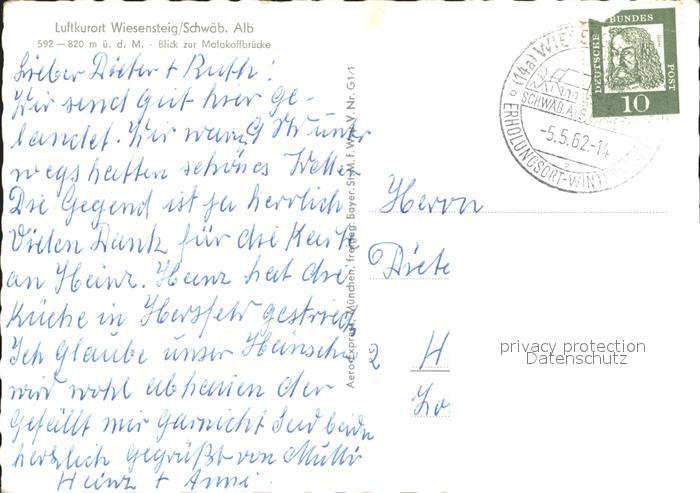 Luftkurort Wiesensteig/Schwäb. Alb
592—820 m ü. d. M. - Blick zur Malakoffbrücke
Lieber Dieter + Ruth!
Wir sind gut hier ge-
landet. Wir waren 9 Std unter
wegs hatten schönes Wetter
Die Gegend ist ja herrlich
Vielen Dank für die Karte
an Heinz. Heinz hat die
Küche in Hersfeld gestrich
Ich glaube unser Heinsche
wird wohl abhauen der
gefällt mir garnicht Seid beide
herzlich gegrüßt von Mutti
Heinz + Anni.
Aeroexpress, München, freigeg. Bayer. St. M. f. W. u. V. Nr. G1/1
(14a) WIES
SCHWÄB. ALB
-5.5.62-14
ERHOLUNGSORT-WINTERS
DEUTSCHE BUNDES POST
10
Herrn
Diete
H
privacy protection
Datenschutz